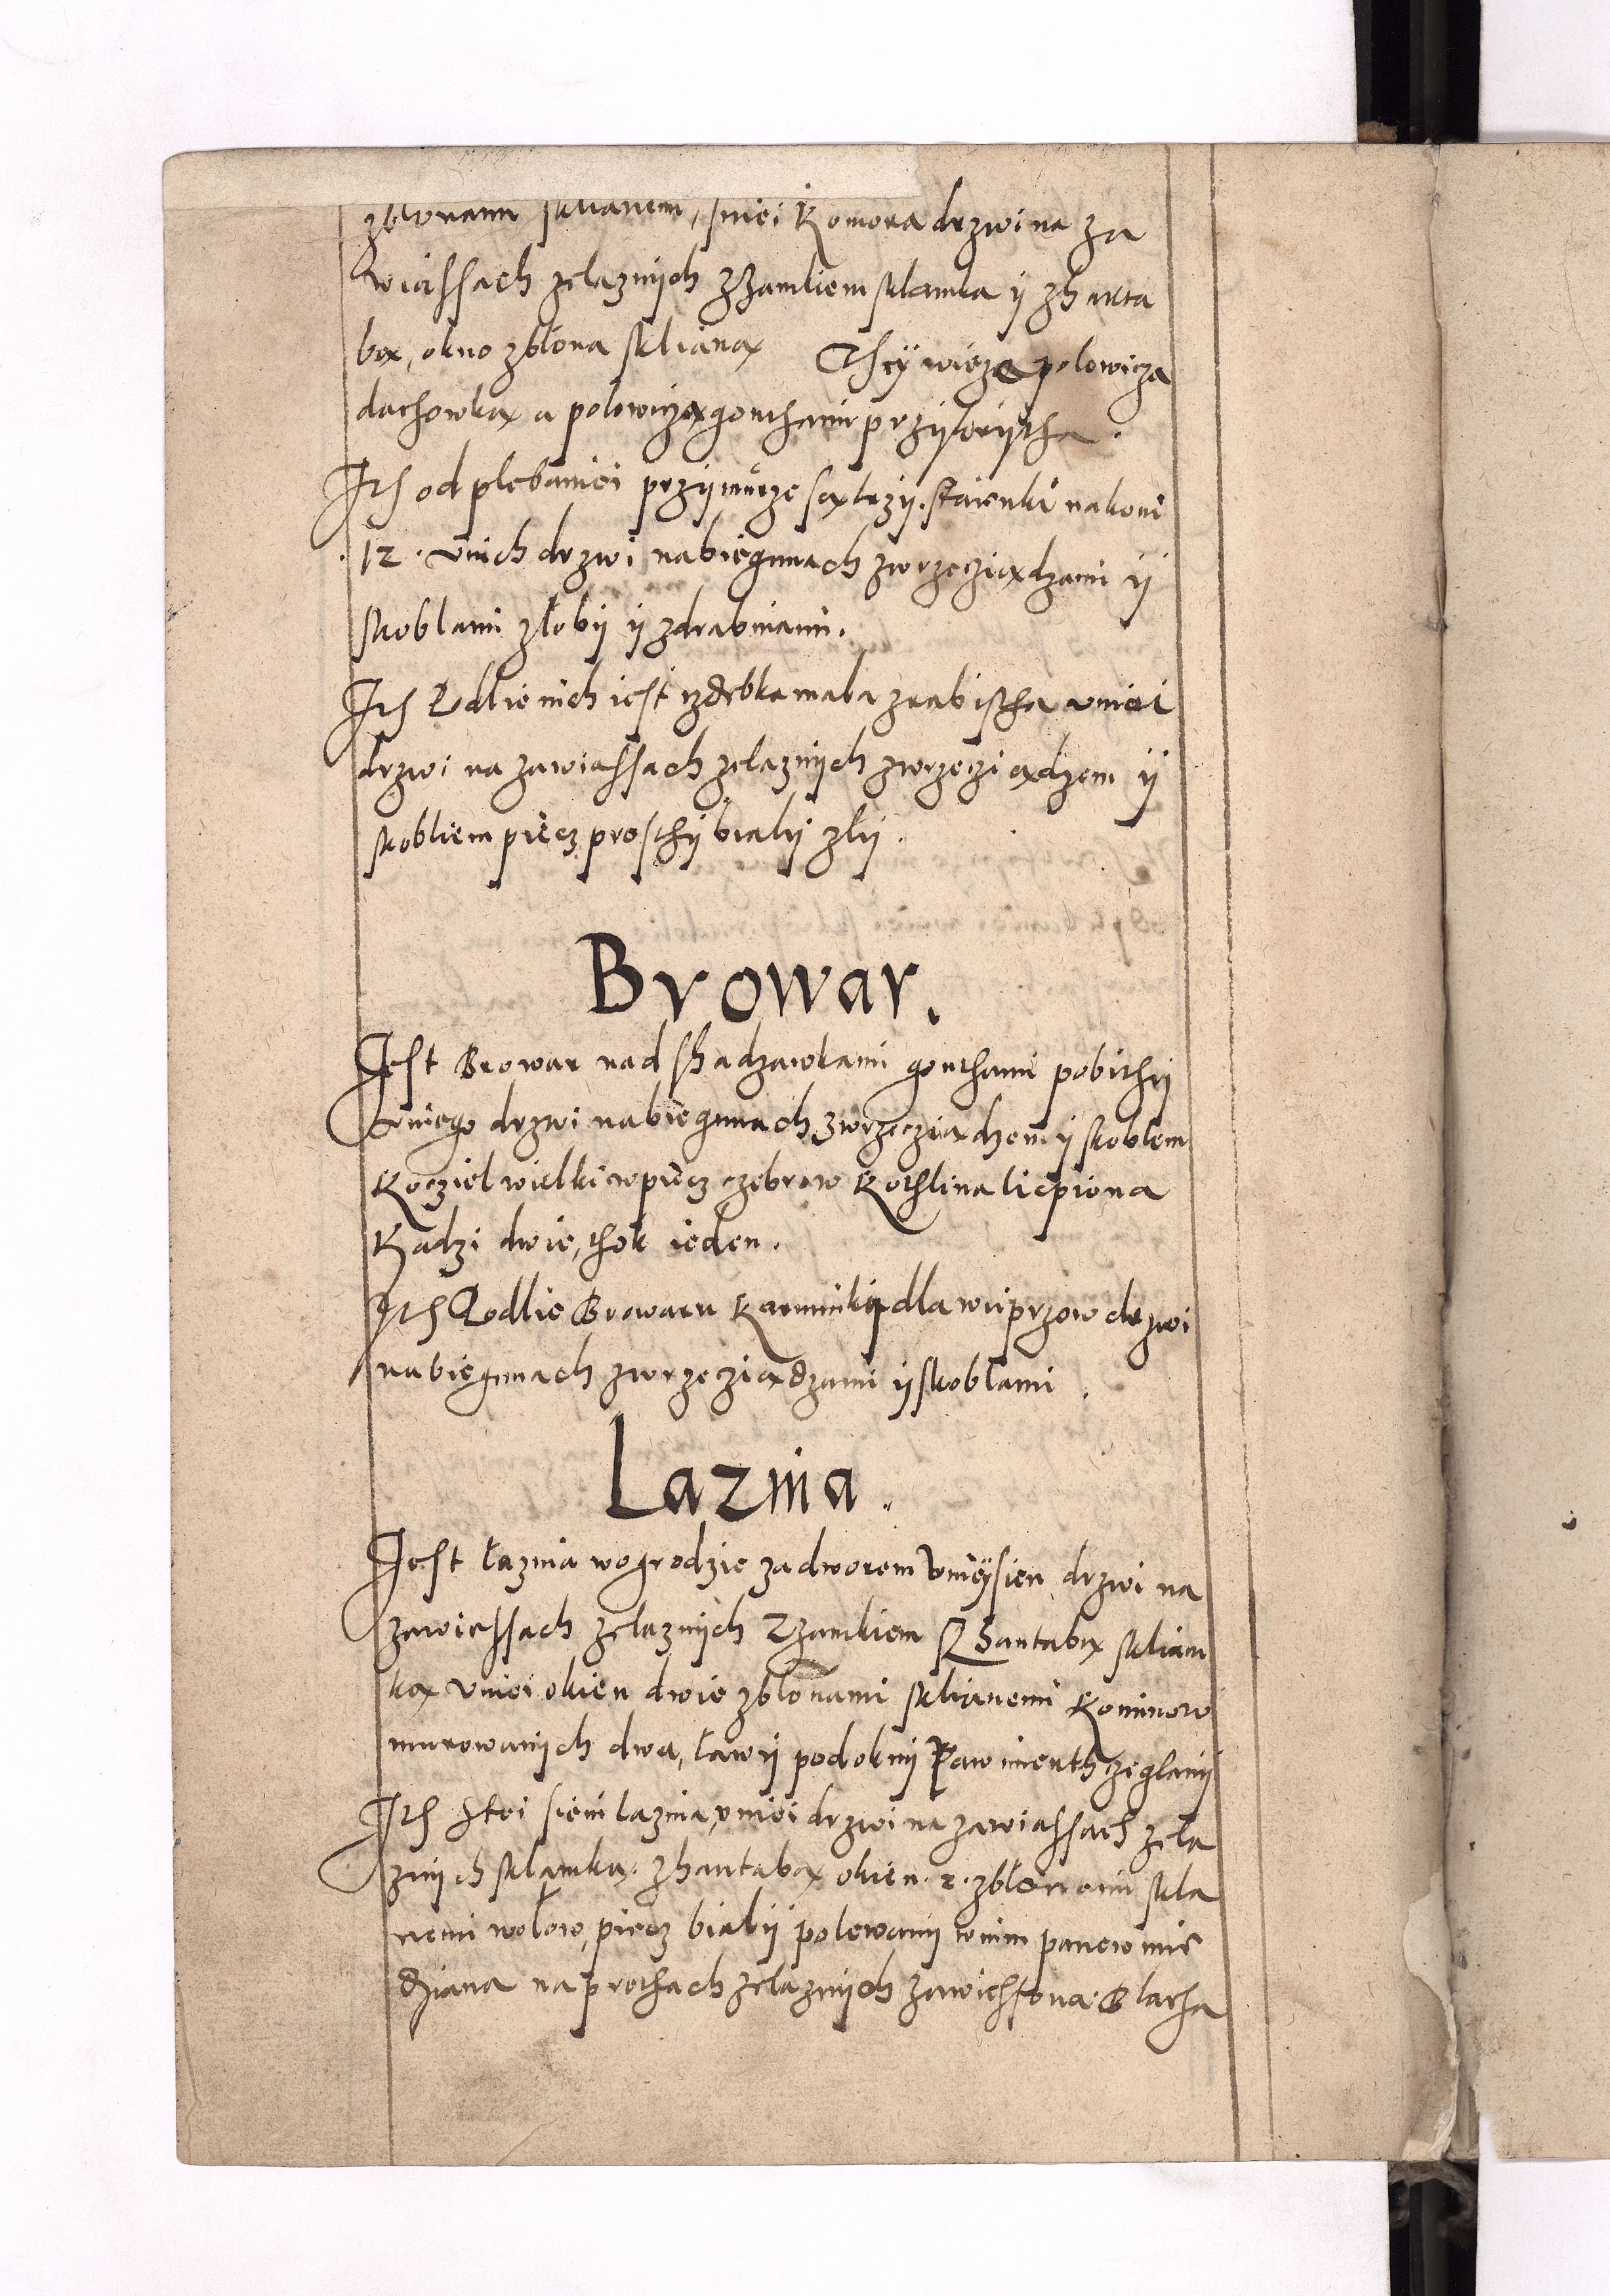 zblonami sklianem, sniei Komora drzwi na za
wiassach zelaznych zzamkiem sklamka y zhanta
bą, okno zblona skliana They wieze polowicza
dachowką a polowiczą gonthami przykrytha.
Ith od plebaniei przy murze są trzy. staienki na koni
.12. v nich drzwi na biegunach zwrzecziądzami y
skoblami złoby y zdrabinami.
Ith Podlie nich iest izdebka mala zrabistha v niei
drzwi na zawiassach zelaznych zwrzecziądzem y
skobliem piecz prosthy bialy zly.
Browar.
Jest Browar nad sadzawkami gonthami pobithy
v niego drzwi na biegunach zwrzecziądzem y skoblem
Kocziel wielki wpiecz czebrow Kothlina liepiona
Kadzi dwie, thok ieden.
Ith Podlie Browaru Karmniki dla wieprzow drzwi
na biegunach zwrzecziądzami y skoblami.
Laznia.
Jest łaznia wogrodzie za dworem v niey sien drzwi na
zawiassach zelaznych Zzamkiem Zhantabą skliam
ką v niei okien dwie zblonami sklianemi Kominow
murowanych dwa, ławy pod okny Pawimenth czeglany
Ith ztei sieni laznia, v niei drzwi na zawiassach zela
znych sklamką. zhantabą okien .2. zblonami skla
nemi wolow, piecz bialy polewany wnim panew mie
dziana na prothach zelaznych zawieszona. Blacha